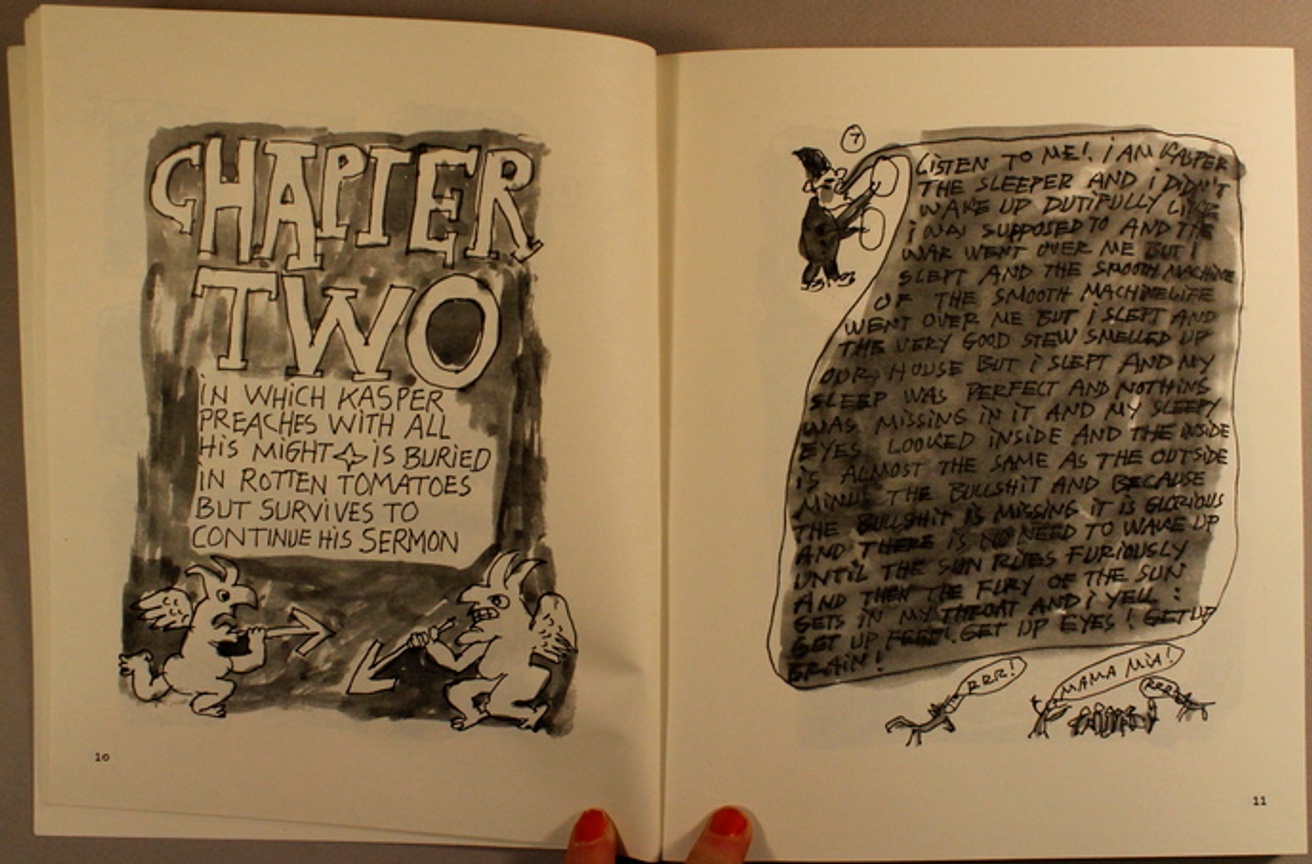 CHAPTER
TWO
IN WHICH KASPER
PREACHES WITH ALL
HIS MIGHT IS BURIED
IN ROTTEN TOMATOES
BUT SURVIVES TO
CONTINUE HIS SERMON
10
7
LISTEN TO ME! I AM KASPER
THE SLEEPER AND I DIDN'T
WAKE UP DUTIFULLY LIKE
I WAS SUPPOSED TO AND THE
WAR WENT OVER ME BUT I
SLEPT AND THE SMOOTH MACHINE
OF THE SMOOTH MACHINELIFE
WENT OVER ME BUT I SLEPT AND
THE VERY GOOD STEW SMELLED UP
OUR HOUSE BUT I SLEPT AND MY
SLEEP WAS PERFECT AND NOTHING
WAS MISSING IN IT AND MY SLEEPY
EYES LOOKED INSIDE AND THE INSIDE
IS ALMOST THE SAME AS THE OUTSIDE
MINUS THE BULLSHIT AND BECAUSE
THE BULLSHIT IS MISSING IT IS GLORIOUS
AND THERE IS NO NEED TO WAKE UP
UNTIL THE SUN RISES FURIOUSLY
AND THEN THE FURY OF THE SUN
GETS IN MY THROAT AND I YELL:
GET UP FEET! GET UP EYES! GET UP
BRAIN!
RRR!
MAMA MIA!
RRR
11